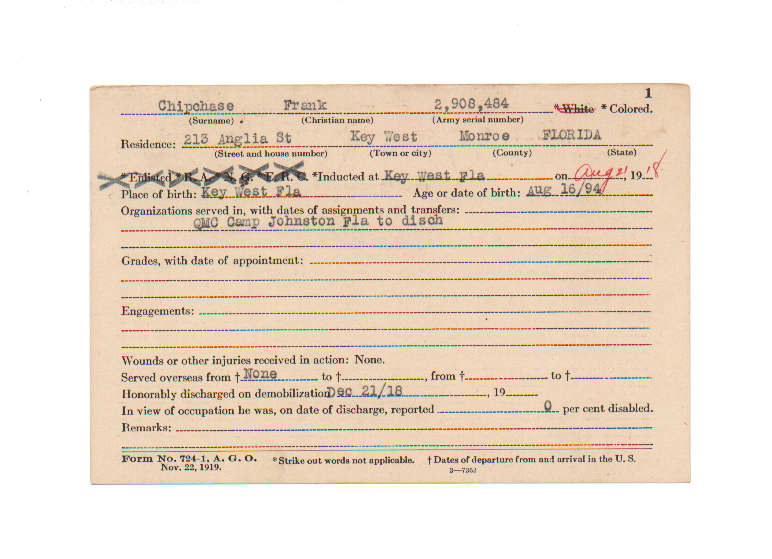 1
Chipchase Frank 2,908,484 *White *Colored.
(Surname) (Christian name) (Army serial number)
Residence: 213 Anglia St Key West Monroe FLORIDA
(Street and house number) (Town or city) (County) (State)
*Enlisted *R. A. N. G. E. R. C. *Inducted at Key West Fla on Aug 21, 1918
Place of birth: Key West Fla Age or date of birth: Aug 16/94
Organizations served in, with dates of assignments and transfers:
QMC Camp Johnston Fla to disch
Grades, with date of appointment:
Engagements:
Wounds or other injuries received in action: None.
Served overseas from † None to †, from † to †
Honorably discharged on demobilization Dec 21/18, 19
In view of occupation he was, on date of discharge, reported 0 per cent disabled.
Remarks:
Form No. 724-1, A. G. O. *Strike out words not applicable. † Dates of departure from and arrival in the U. S.
Nov. 22, 1919.